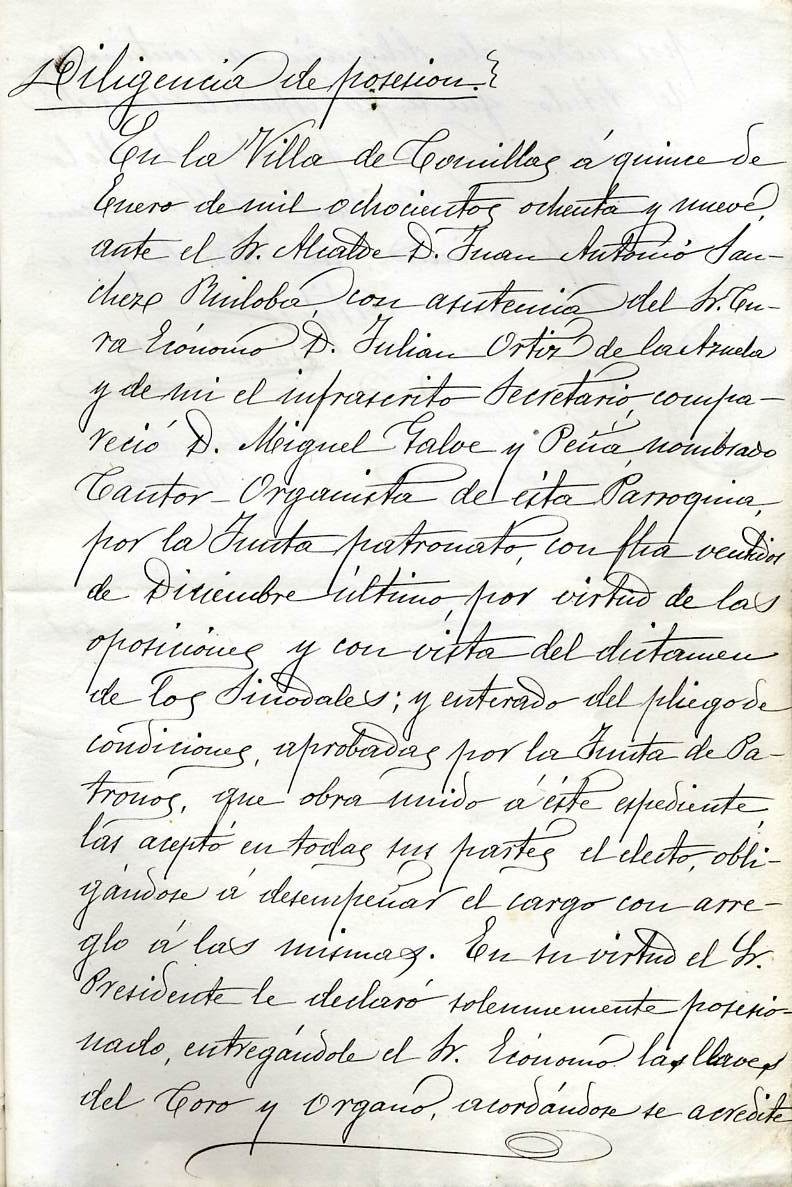 Diligencia de posesion.}
En la Villa de Comillas á quince de
Enero de mil ochocientos ochenta y nueve,
ante el Sr. Alcalde D. Juan Antonio San-
chez Ruiloba, con asistencia del Sr. Cu-
ra Ecónomo D. Julian Ortiz de la Azuela
y de mi el infrascrito Secretario, compa-
reció D. Miguel Galve y Peña, nombrado
Cantor-Organista de ésta Parroquia,
por la Junta patronato, con fha ventidos
de Diciembre último, por virtud de las
oposiciones y con vista del dictamen
de los Sinodales; y enterado del pliego de
condiciones, aprobadas por la Junta de Pa-
tronos, que obra unido á éste espediente,
las aceptó en todas sus partes el electo, obli-
gándose á desempeñar el cargo con arre-
glo á las mismas. En su virtud el Sr.
Presidente le declaró solennemente posesio-
nado, entregándole el Sr. Ecónomo las llaves
del Coro y Organo, acordándose se acredite